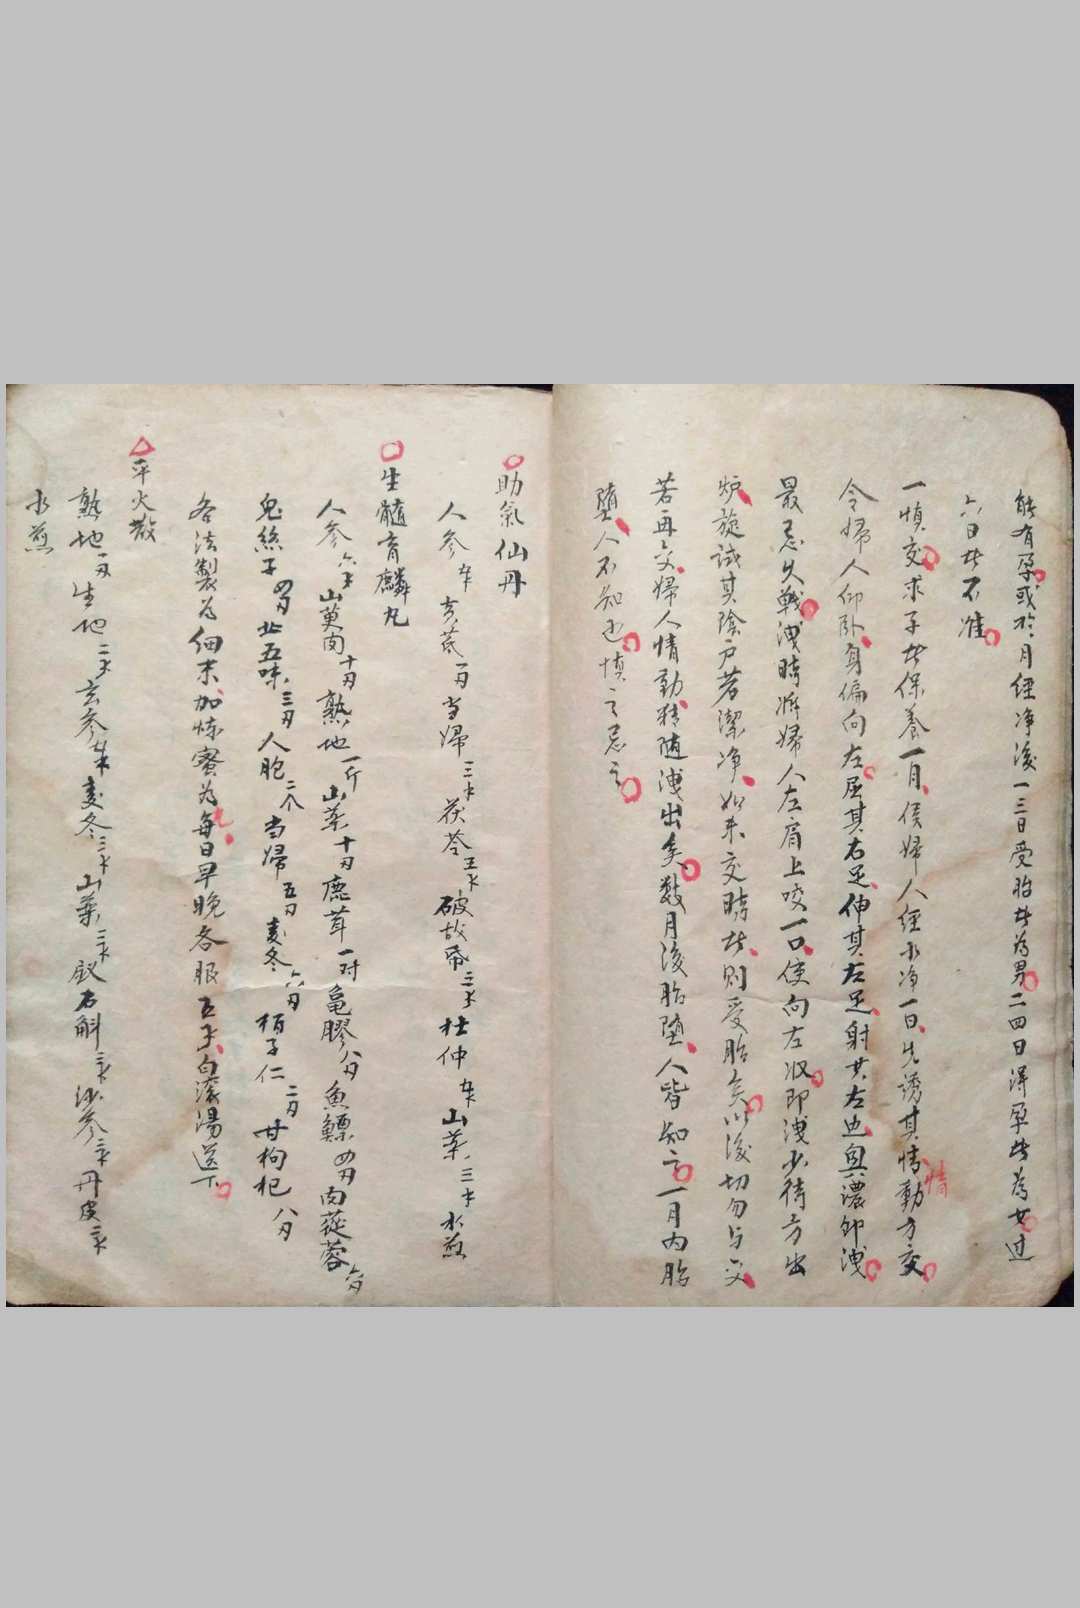 能有孕或於月經净後一三日受胎者為男二四日得孕者為女过
六日者不准
一慎交求子者保养一月侯婦人經水净一日先誘其情動方交
情
令婦人仰卧身偏向左屈其右足伸其左足射其左也興濃即洩
最忌久戰洩時將婦人左肩上咬一口使向左収即洩少待方出
炉旋試其陰户若潔净如未交時者則受胎矣以後切勿与交
若再交婦人情動精随洩出矣数月後胎堕人皆知之一月内胎
堕人不知也慎之忌之
助氣仙丹
人參 黄茋 当婦三水 茯苓五水 破故帋三水 杜仲 山菜三水 水煎
生髓育麟丸
人參六水 山萸肉十刄 熟地一斤 山菜十刄 鹿茸一对 亀膠八刄 魚鰾四刄 肉蓯蓉六刄
兎絲子四刄 北五味三刄 人胞二个 当婦五刄 麦冬六刄 栢子仁二刄 甘枸杞八刄
各法製為细末加炼蜜為丸每日早晚各服五水白滚湯送下
平火散
熟地一刄 生地二水 玄參 麦冬三水 山菜三水 石斛三水 沙參三水 丹皮三水
水煎